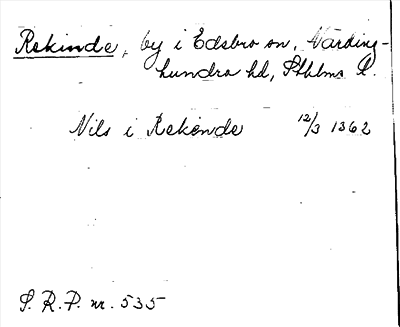 Rekinde, by i Edsbro sn, Närding-
hundra hd, Sthlms l.
Nils i Rekende 12/3 1362
S. R. P. nr. 535